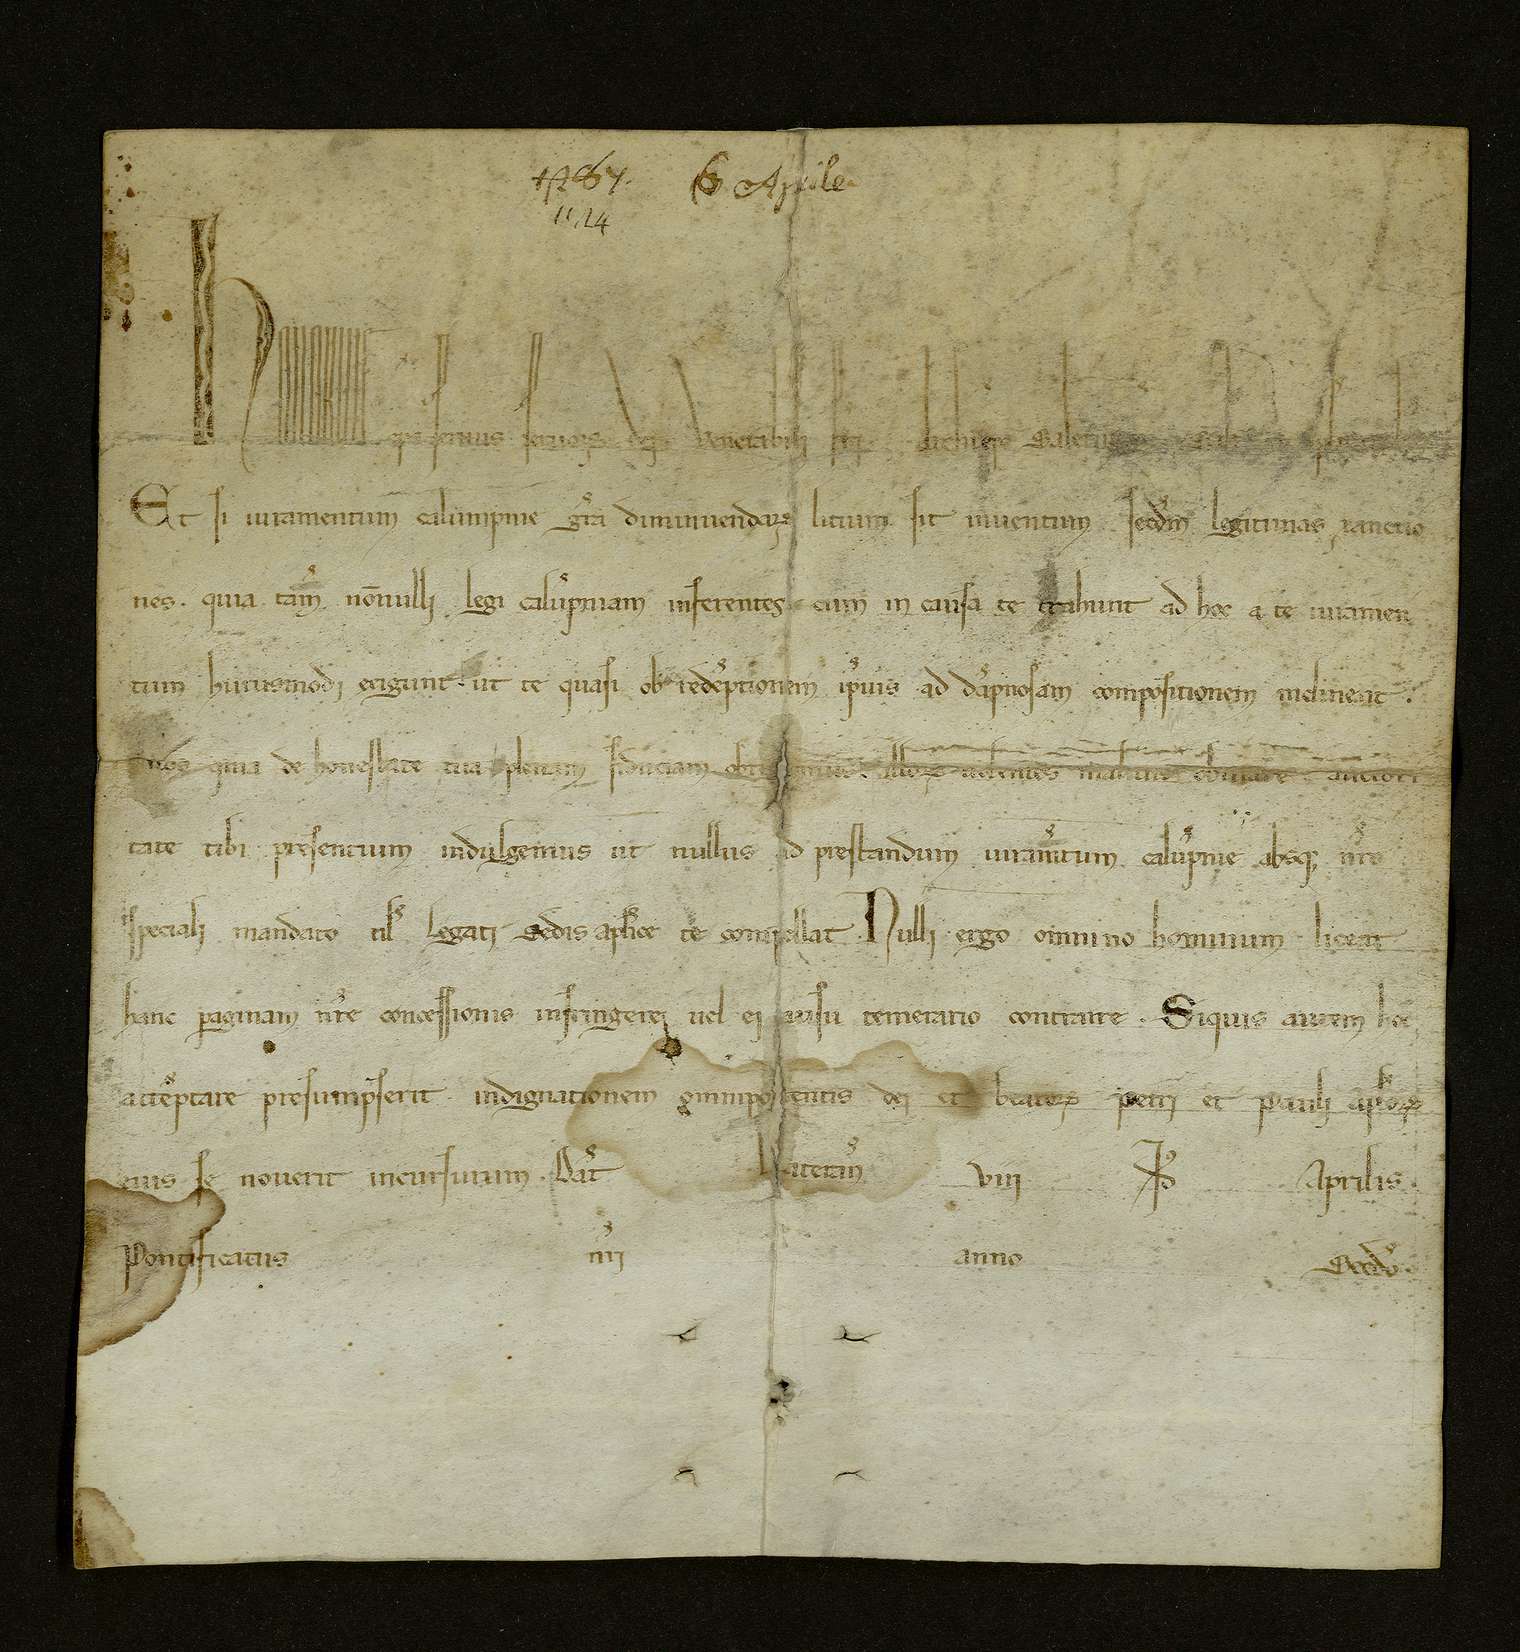 1287. 6 Aprile
1124
H eps servus servoꝝ dei. Venerabili fri. Archiepo Salerni
Et si iuramentum calumpnie gra diminuendaꝝ litium sit inventum secdm legitimas sanctio
nes. quia tam nonnulli legi calupniam inferentes cum in causa te trahunt ad hoc a te iuramen
tum huiusmodi exigunt. ut te quasi ob redeptionem ipsius ad dapnosam compositionem inclinent.
nos quia de honestate tua plenam fiduciam obtinemus. illoꝝ volentes malitiis obviare auctori
tate tibi presentium indulgemus ut nullus ad prestandum iuramtum calupnie absqꝫ nro
speciali mandato vl Legati Sedis aplice te compellat. Nulli ergo omnino hominum liceat
hanc paginam nre concessionis infringere, vel ei ausu temerario contraire. Siquis autem hoc
attemptare presumpserit. indignationem omnipotentis dei et beatoꝝ petri et pauli aploꝝ
eius se noverit incursurum. Dat Lateran viii kl Aprilis.
Pontificatus nri anno Secdo.